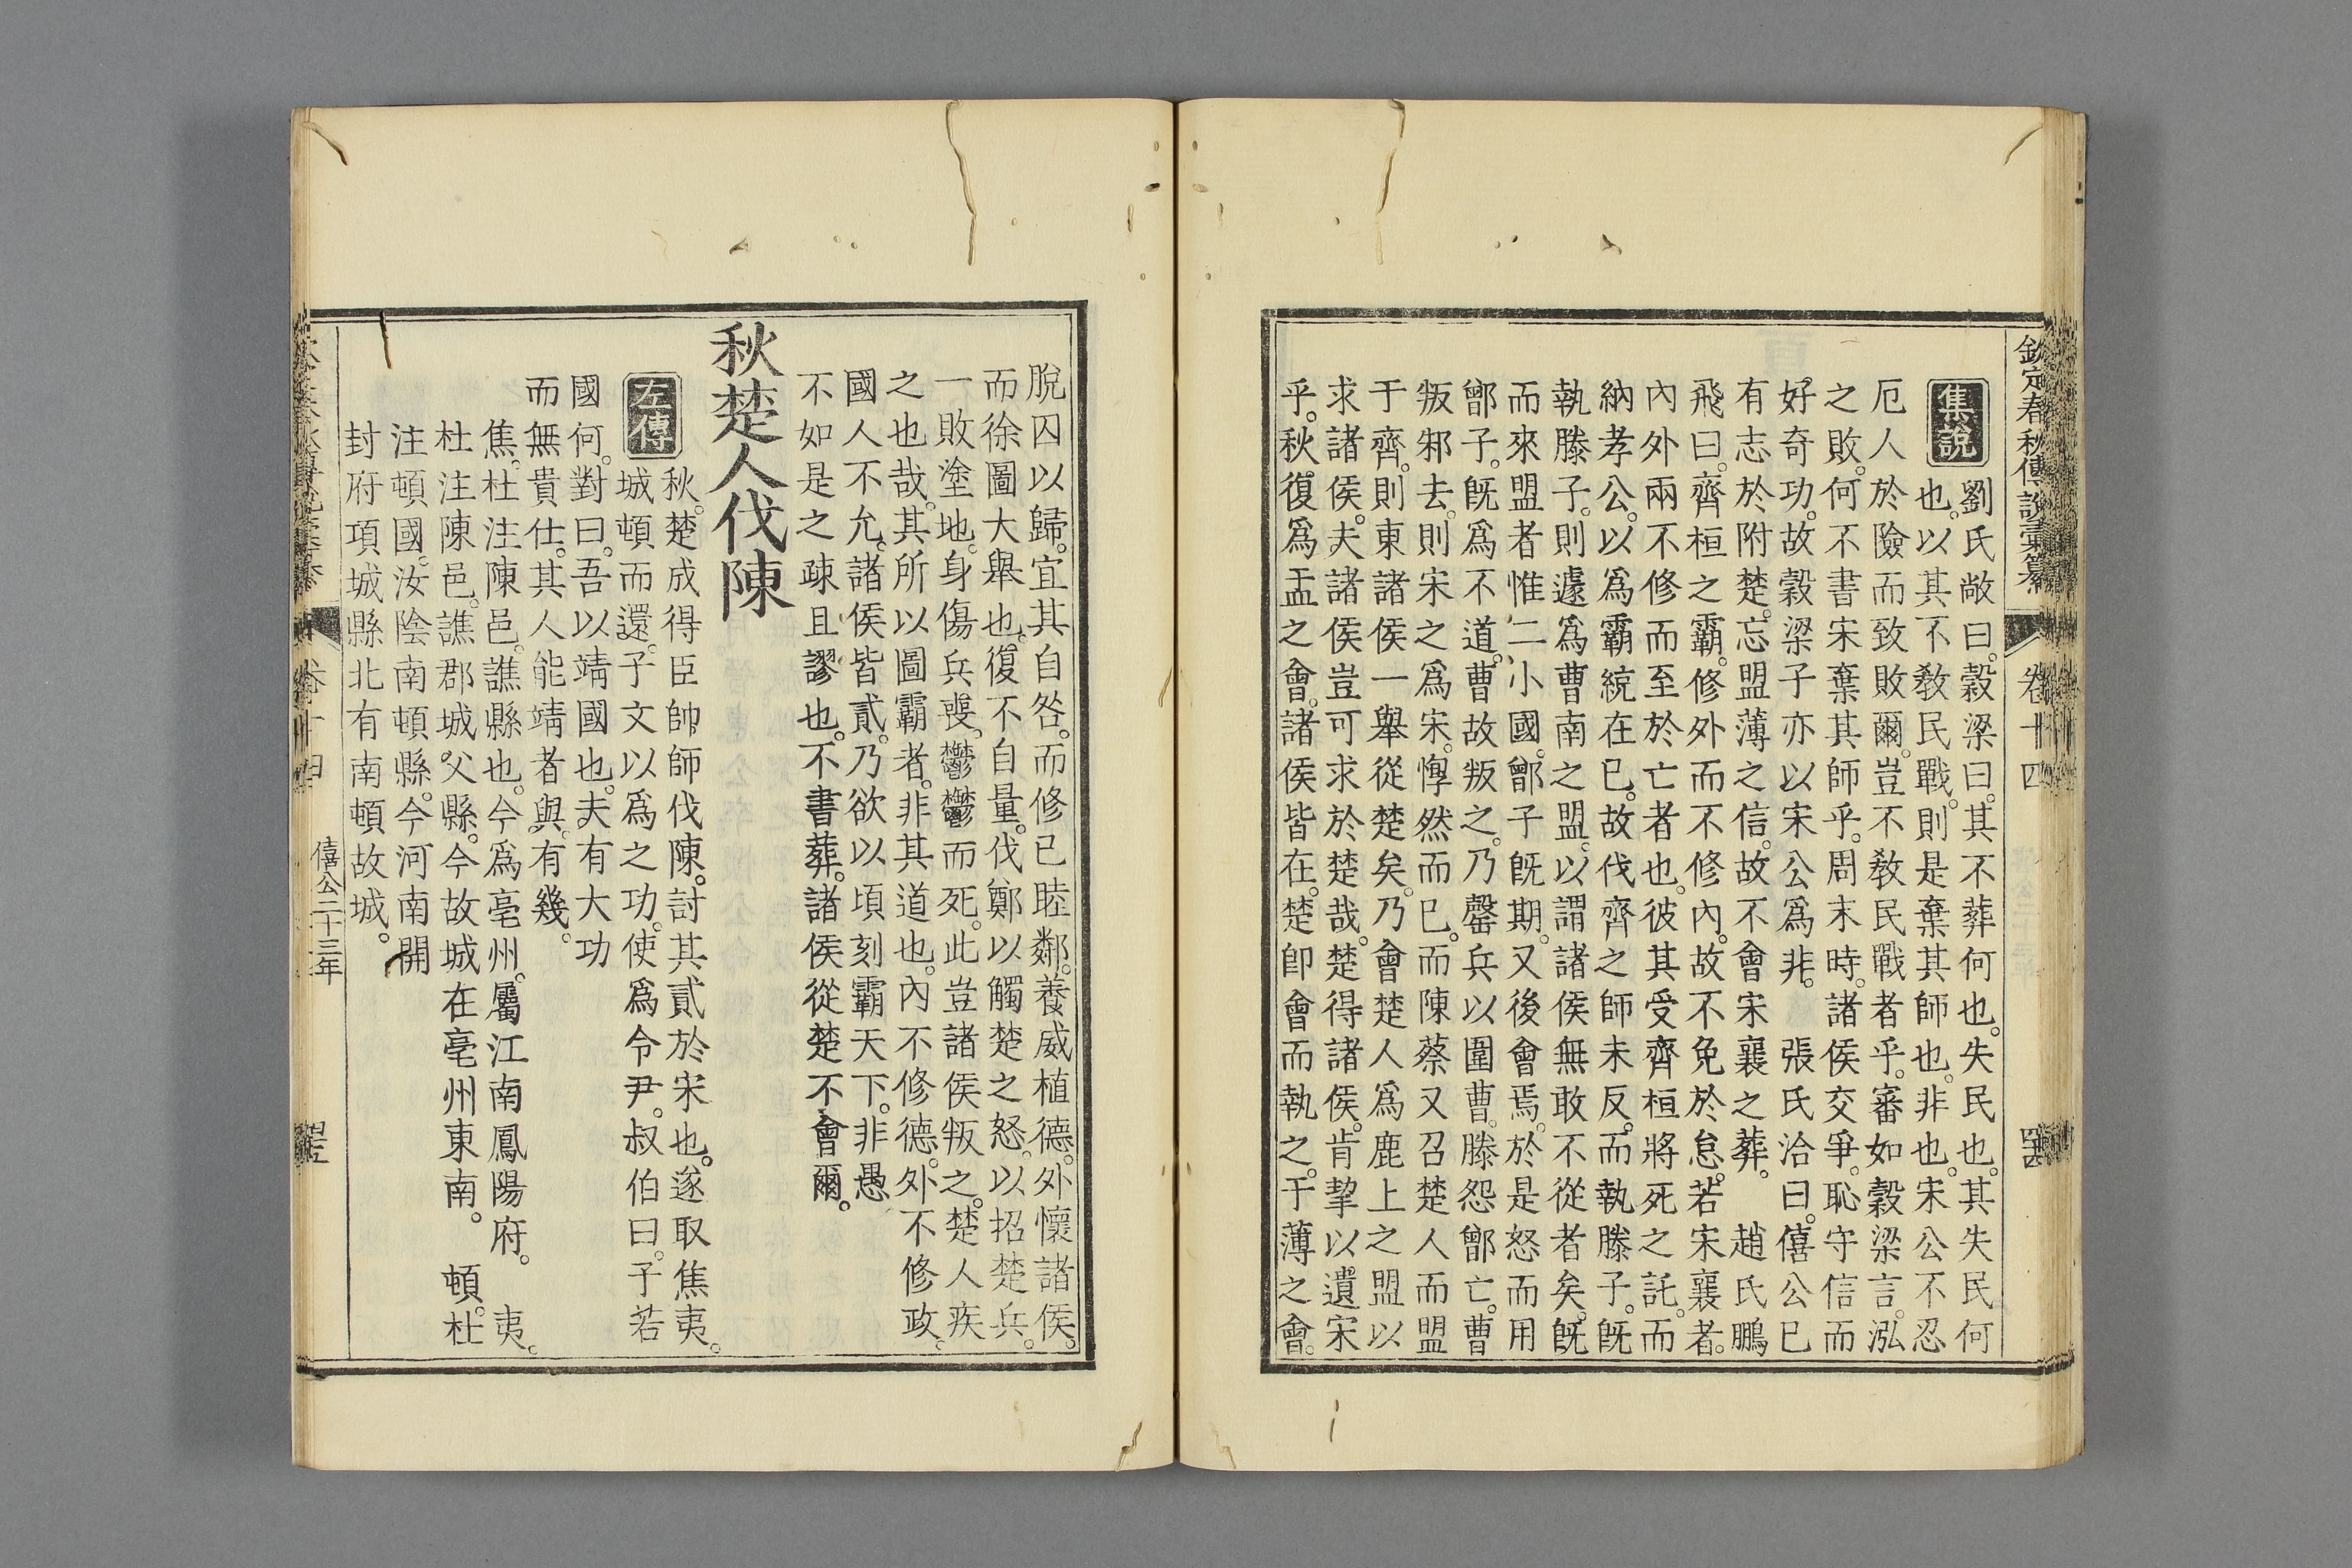 欽定春秋傳說彙纂 卷十四
集說
劉氏敞曰。穀梁曰。其不葬何也。失民也。其失民何
也。以其不敎民戰。則是棄其師也。非也。宋公不忍
厄人於險而致敗爾。豈不敎民戰者乎。審如穀梁言。泓
之敗。何不書宋棄其師乎。周末時。諸侯交爭。恥守信而
好奇功。故穀梁子亦以宋公爲非。 張氏洽曰。僖公已
有志於附楚。忘盟薄之信。故不會宋襄之葬。 趙氏鵬
飛曰。齊桓之霸。修外而不修內。故不免於怠。若宋襄者。
內外兩不修而至於亡者也。彼其受齊桓將死之託。而
納孝公。以爲霸統在已。故伐齊之師未反。而執滕子。旣
執滕子。則遽爲曹南之盟。以謂諸侯無敢不從者矣。旣
而來盟者惟二小國。鄫子旣期。又後會焉。於是怒而用
鄫子。旣爲不道。曹故叛之。乃罄兵以圍曹。滕怨鄫亡。曹
叛邾去。則宋之爲宋。惸然而已。而陳蔡又召楚人而盟
于齊。則東諸侯一舉從楚矣。乃會楚人爲鹿上之盟以
求諸侯。夫諸侯豈可求於楚哉。楚得諸侯。肯挈以遺宋
乎。秋。復爲盂之會。諸侯皆在。楚卽會而執之。于薄之會。
脫囚以歸。宜其自咎。而修已睦鄰。養威植德。外懷諸侯。
而徐圖大舉也。復不自量。伐鄭以觸楚之怒。以招楚兵。
一敗塗地。身傷兵喪。鬱鬱而死。此豈諸侯叛之。楚人疾
之也哉。其所以圖霸者。非其道也。內不修德。外不修政。
國人不允。諸侯皆貳。乃欲以頃刻霸天下。非愚
不如是之疎且謬也。不書葬。諸侯從楚不會爾。
秋楚人伐陳
左傳
秋。楚成得臣帥師伐陳。討其貳於宋也。遂取焦夷。
城頓而還。子文以爲之功。使爲令尹。叔伯曰。子若
國何。對曰。吾以靖國也。夫有大功
而無貴仕。其人能靖者與。有幾。
焦。杜注陳邑。譙縣也。今爲亳州。屬江南鳳陽府。 夷。
杜注陳邑。譙郡城父縣。今故城在亳州東南。 頓。杜
注頓國。汝陰南頓縣。今河南開
封府項城縣北有南頓故城。
僖公二十三年